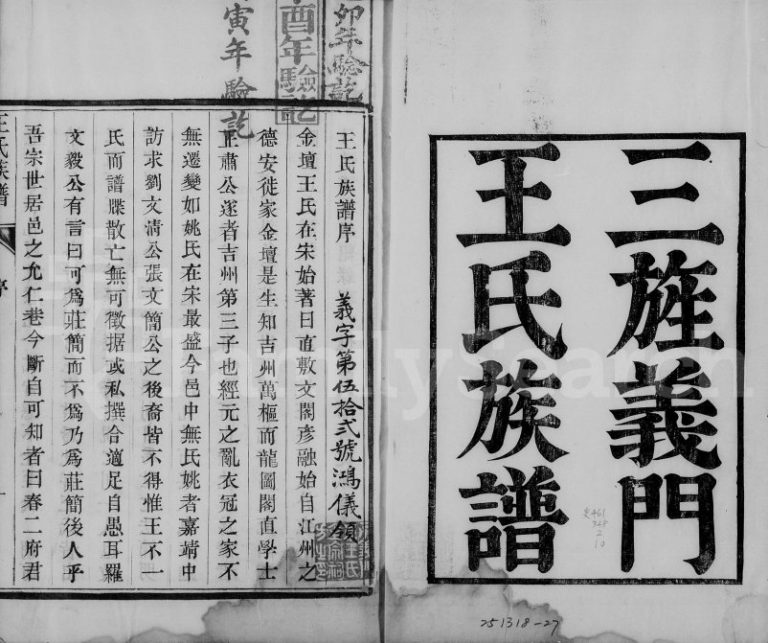 三旌義門
王氏族譜
卯年驗訖
酉年驗訖
寅年驗訖
王氏族譜序 義字第伍拾弍號鴻儀領
金壇王氏在宋始著曰直敷文閣彥融始自江州之
德安徙家金壇是生知吉州萬樞而龍圖閣直學士
正肅公遂者吉州第三子也經元之亂衣冠之家不
無遷變如姚氏在宋最盛今邑中無氏姚者嘉靖中
訪求劉文清公張文簡公之後裔皆不得惟王不一
氏而譜牒散亡無可徵據或私撰合適足自愚耳羅
文毅公有言曰可為莊簡而不為乃為莊簡後人乎
吾宗世居邑之允仁巷今斷自可知者曰春二府君
王氏族譜
序
一
251318-27